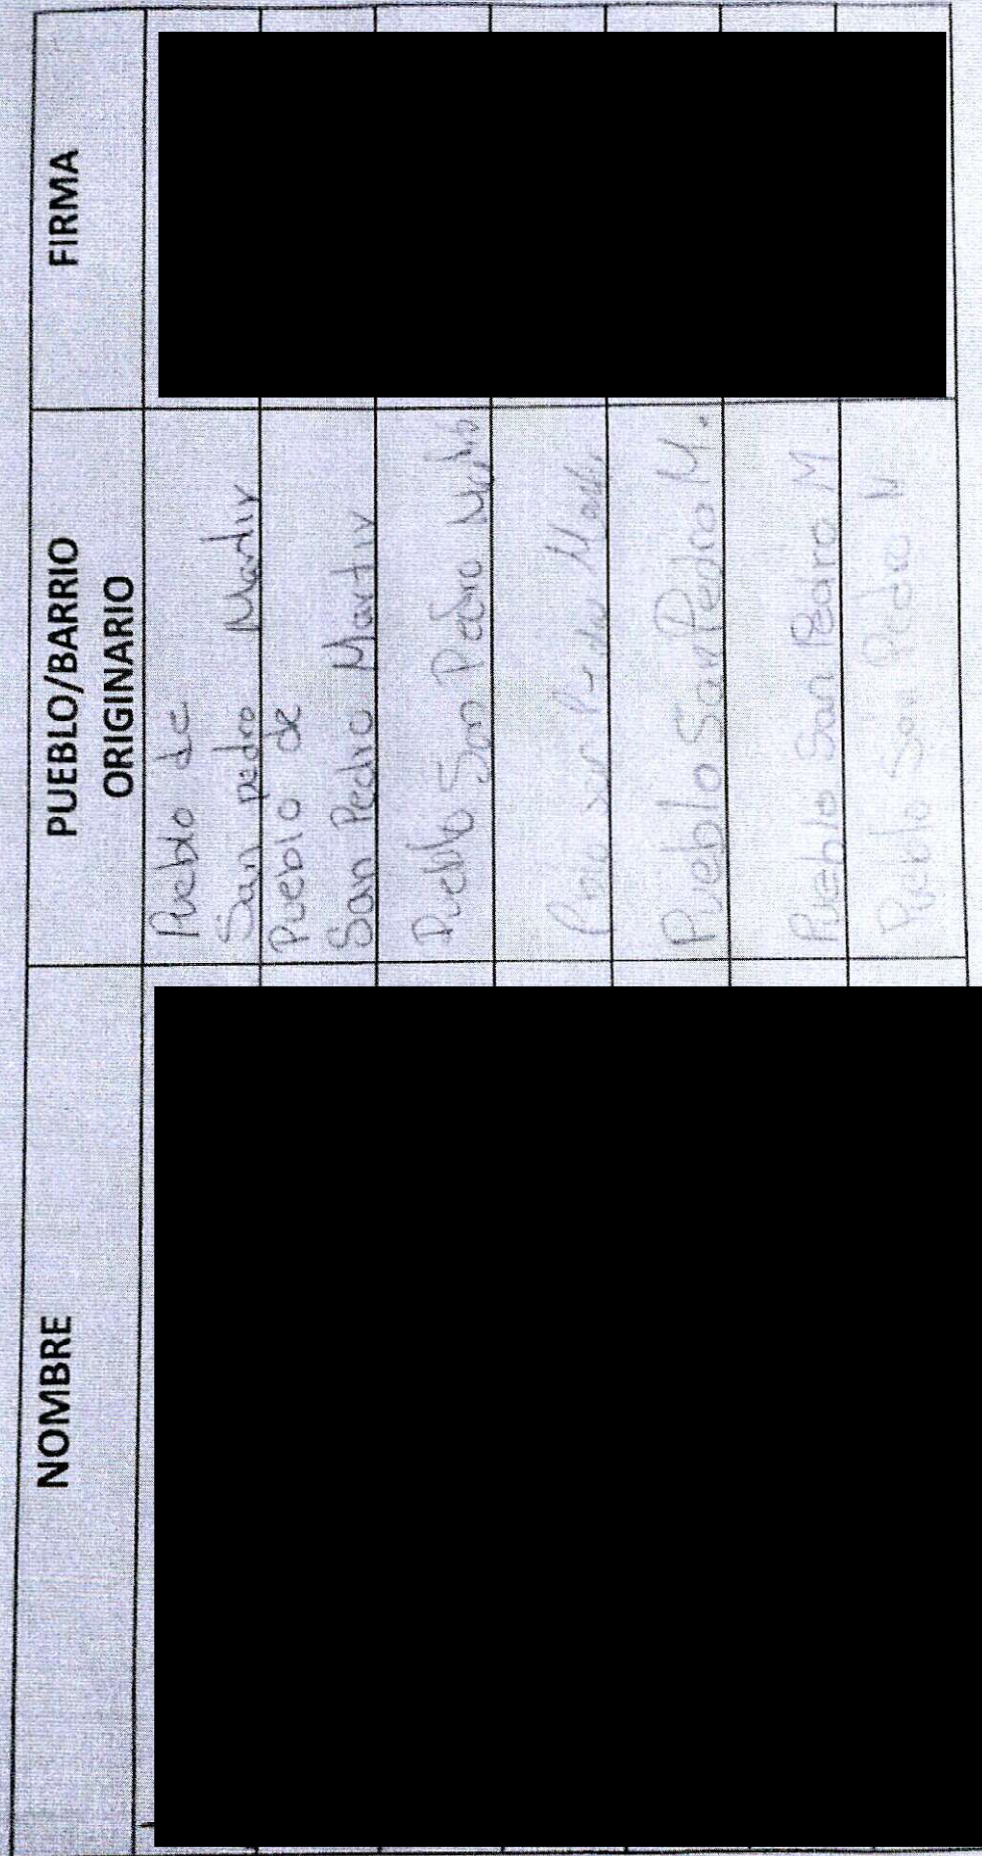 NOMBRE
PUEBLO/BARRIO
ORIGINARIO
FIRMA
Pueblo de
San pedro Martir
Pueblo de
San Pedro Martir
Pueblo San Pedro
Pueblo San Pedro M.
Pueblo San Pedro M
Pueblo San Pedro M